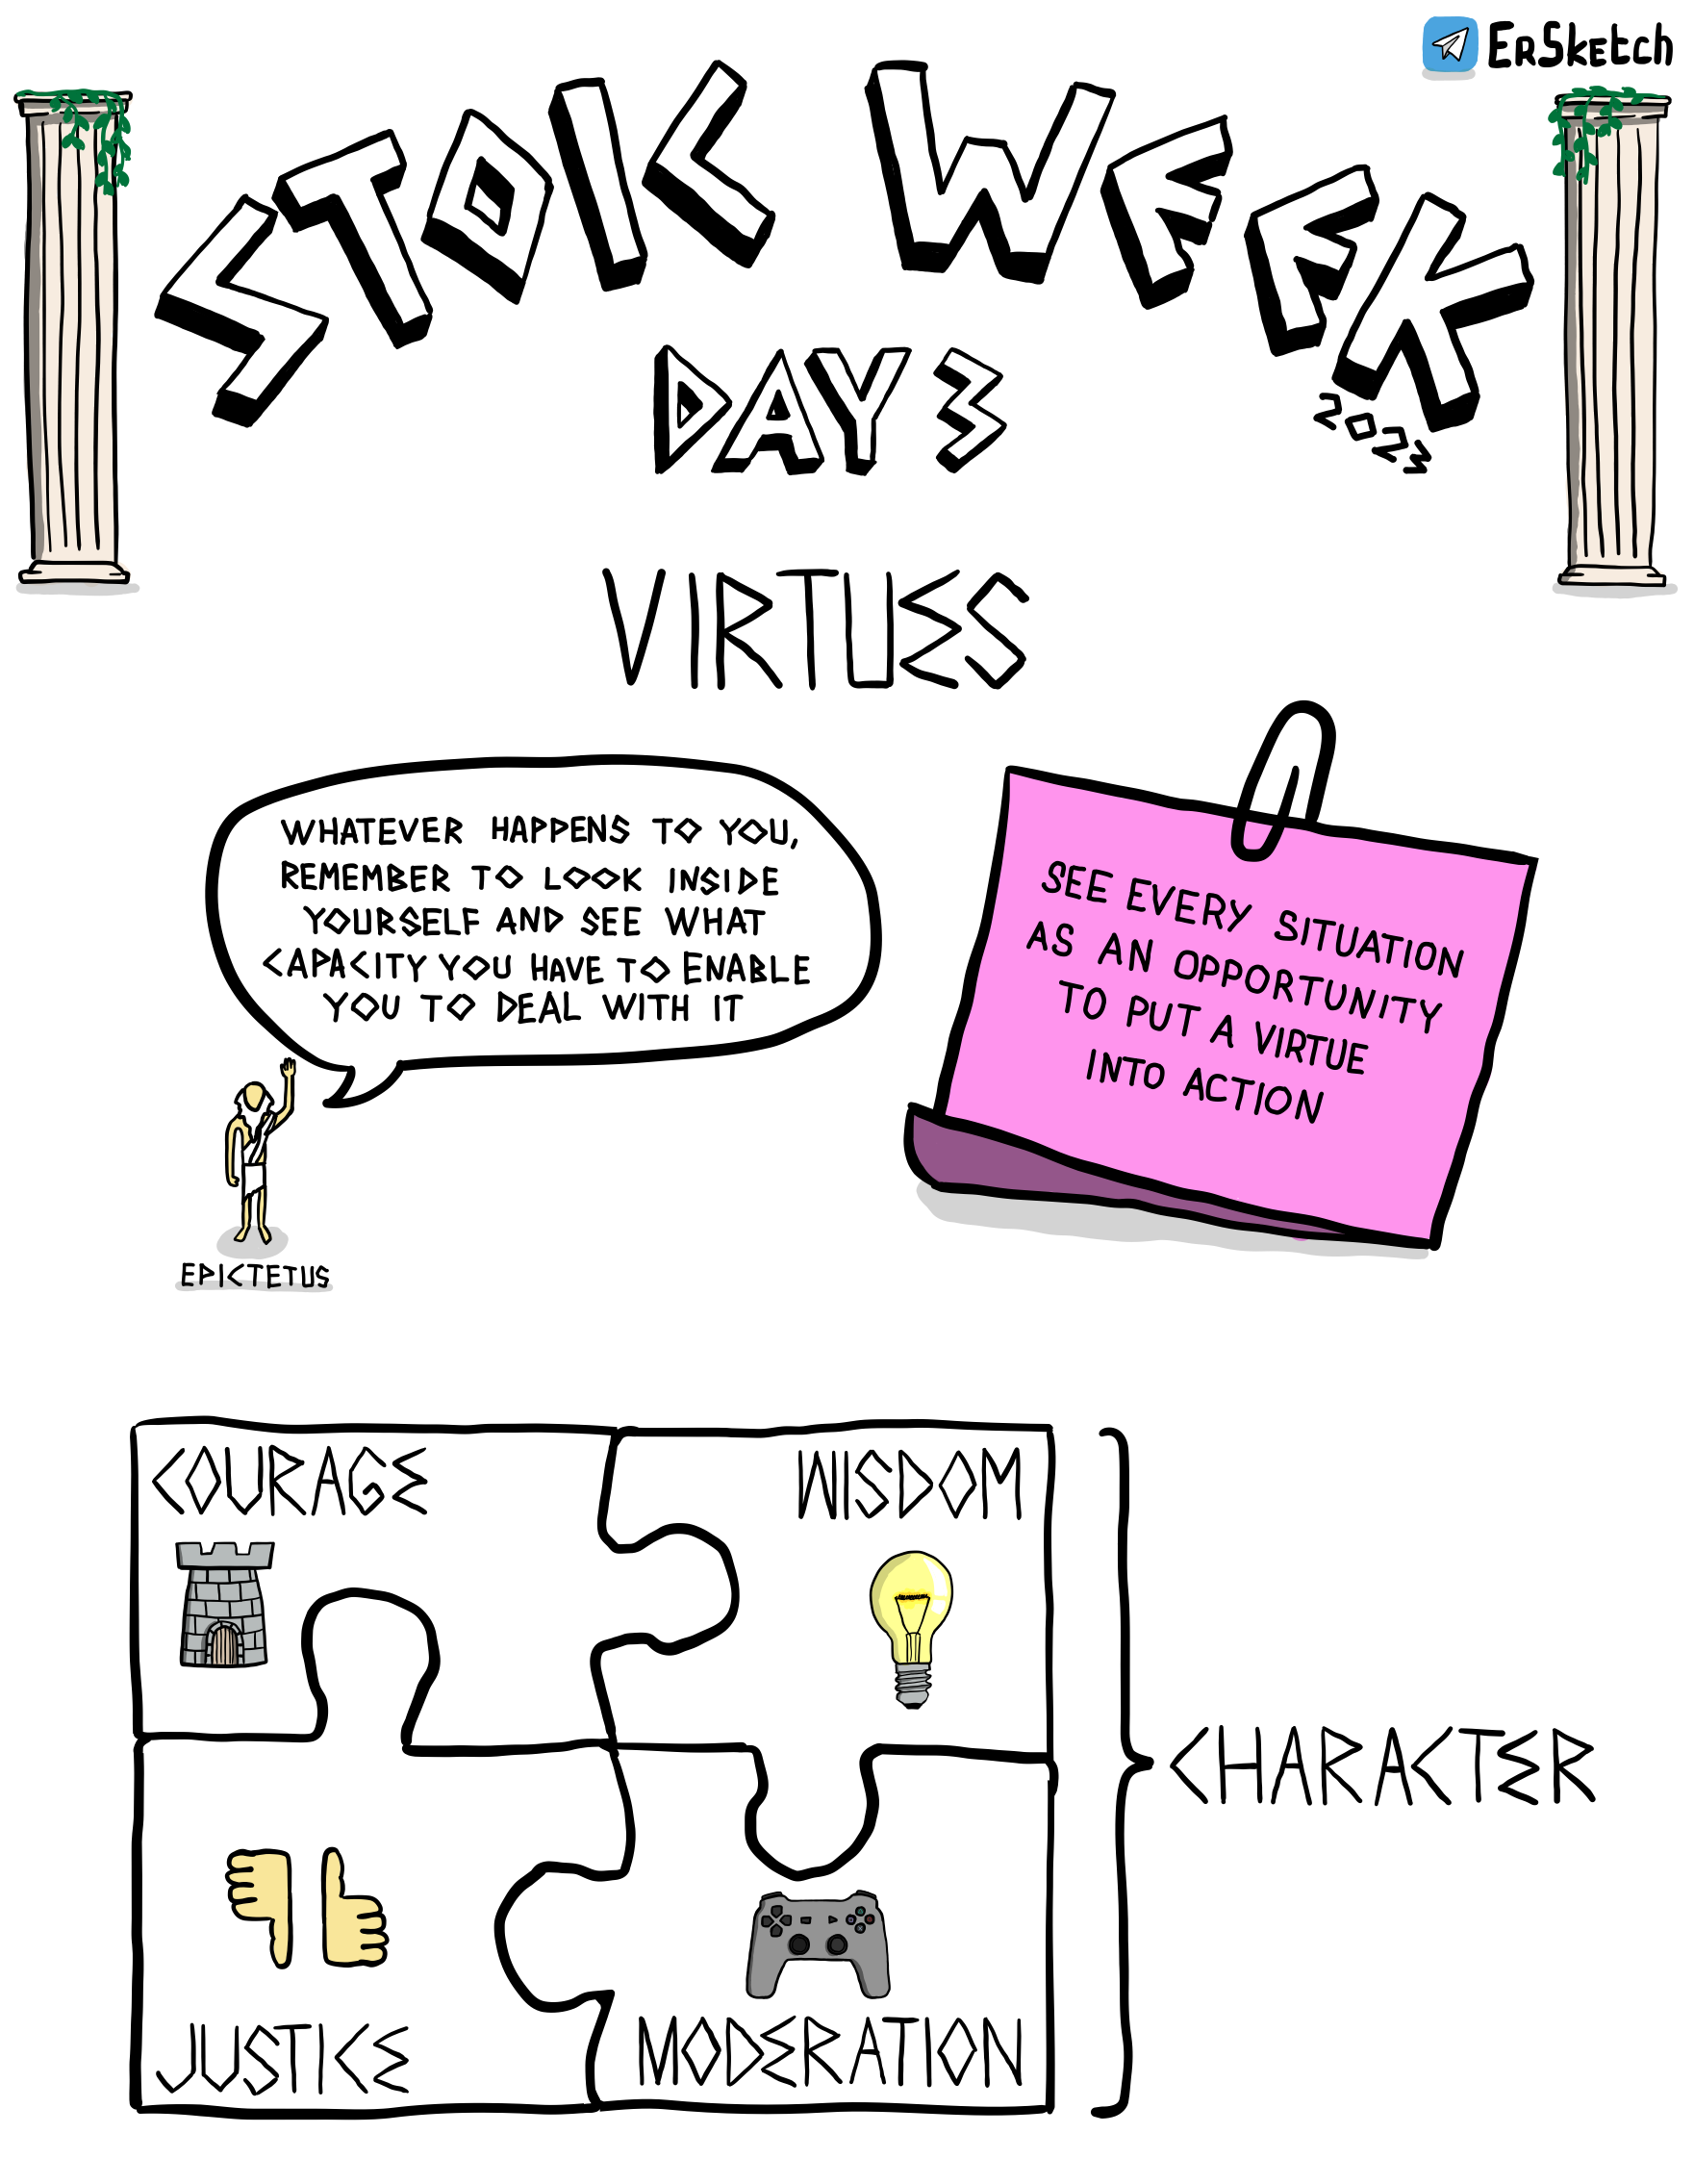 ErSketch
STOIC WEEK
2023
DAY 3
VIRTUES
WHATEVER HAPPENS TO YOU,
REMEMBER TO LOOK INSIDE
YOURSELF AND SEE WHAT
CAPACITY YOU HAVE TO ENABLE
YOU TO DEAL WITH IT
EPICTETUS
SEE EVERY SITUATION
AS AN OPPORTUNITY
TO PUT A VIRTUE
INTO ACTION
COURAGE
WISDOM
CHARACTER
JUSTICE
MODERATION